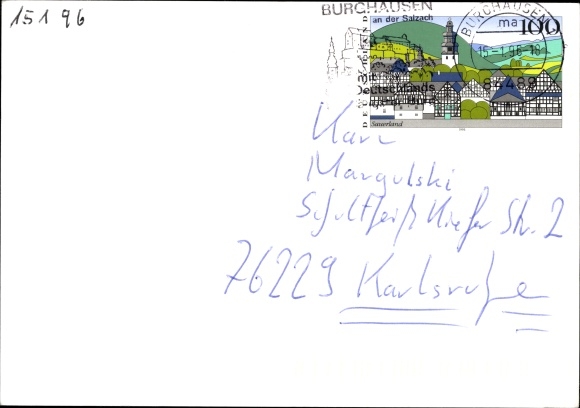 15 1 96
BURGHAUSEN
an der Salzach
mit
Deutschlands
BURGHAUSEN
ma
15.-1.96-18
84489
100
Sauerland
Margulski
Schultheiß Kiefer Str. 2
76229 Karlsruhe